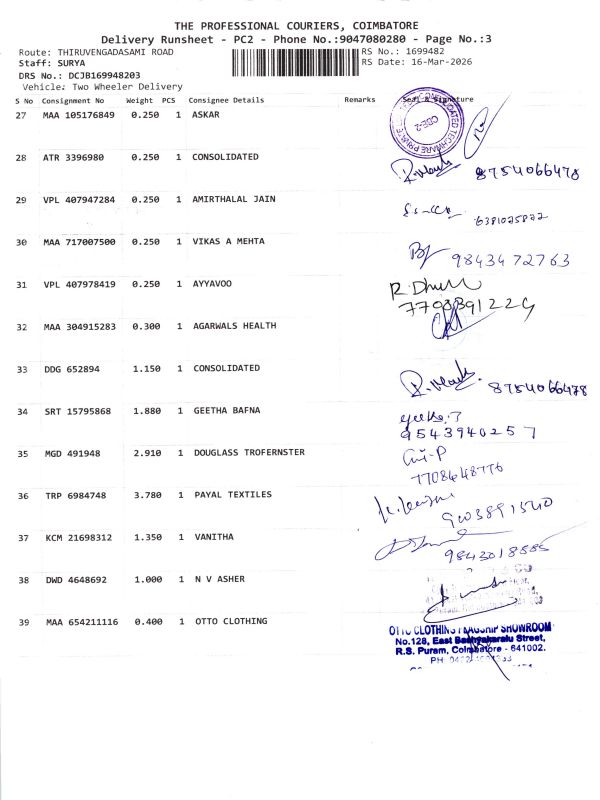 THE PROFESSIONAL COURIERS, COIMBATORE
Delivery Runsheet - PC2 - Phone No.:9047080280 - Page No.:3
Route: THIRUVENGADASAMI ROAD RS No.: 1699482
Staff: SURYA RS Date: 16-Mar-2026
DRS No.: DCJB169948203
Vehicle: Two Wheeler Delivery
S No Consignment No Weight PCS Consignee Details Remarks Seal & Signature
27 MAA 105176849 0.250 1 ASKAR
28 ATR 3396980 0.250 1 CONSOLIDATED
8754066478
29 VPL 407947284 0.250 1 AMIRTHALAL JAIN
6381025822
30 MAA 717007500 0.250 1 VIKAS A MEHTA
9843472763
31 VPL 407978419 0.250 1 AYYAVOO
R. Dhull
7708391229
32 MAA 304915283 0.300 1 AGARWALS HEALTH
33 DDG 652894 1.150 1 CONSOLIDATED
8754066478
34 SRT 15795868 1.880 1 GEETHA BAFNA
9543940257
35 MGD 491948 2.910 1 DOUGLASS TROFERNSTER
7708648776
36 TRP 6984748 3.780 1 PAYAL TEXTILES
9003891540
37 KCM 21698312 1.350 1 VANITHA
9843018585
38 DWD 4648692 1.000 1 N V ASHER
39 MAA 654211116 0.400 1 OTTO CLOTHING
OTTO CLOTHING FLAGSHIP SHOWROOM
No.128, East Bashyakaralu Street,
R.S. Puram, Coimbatore - 641002.